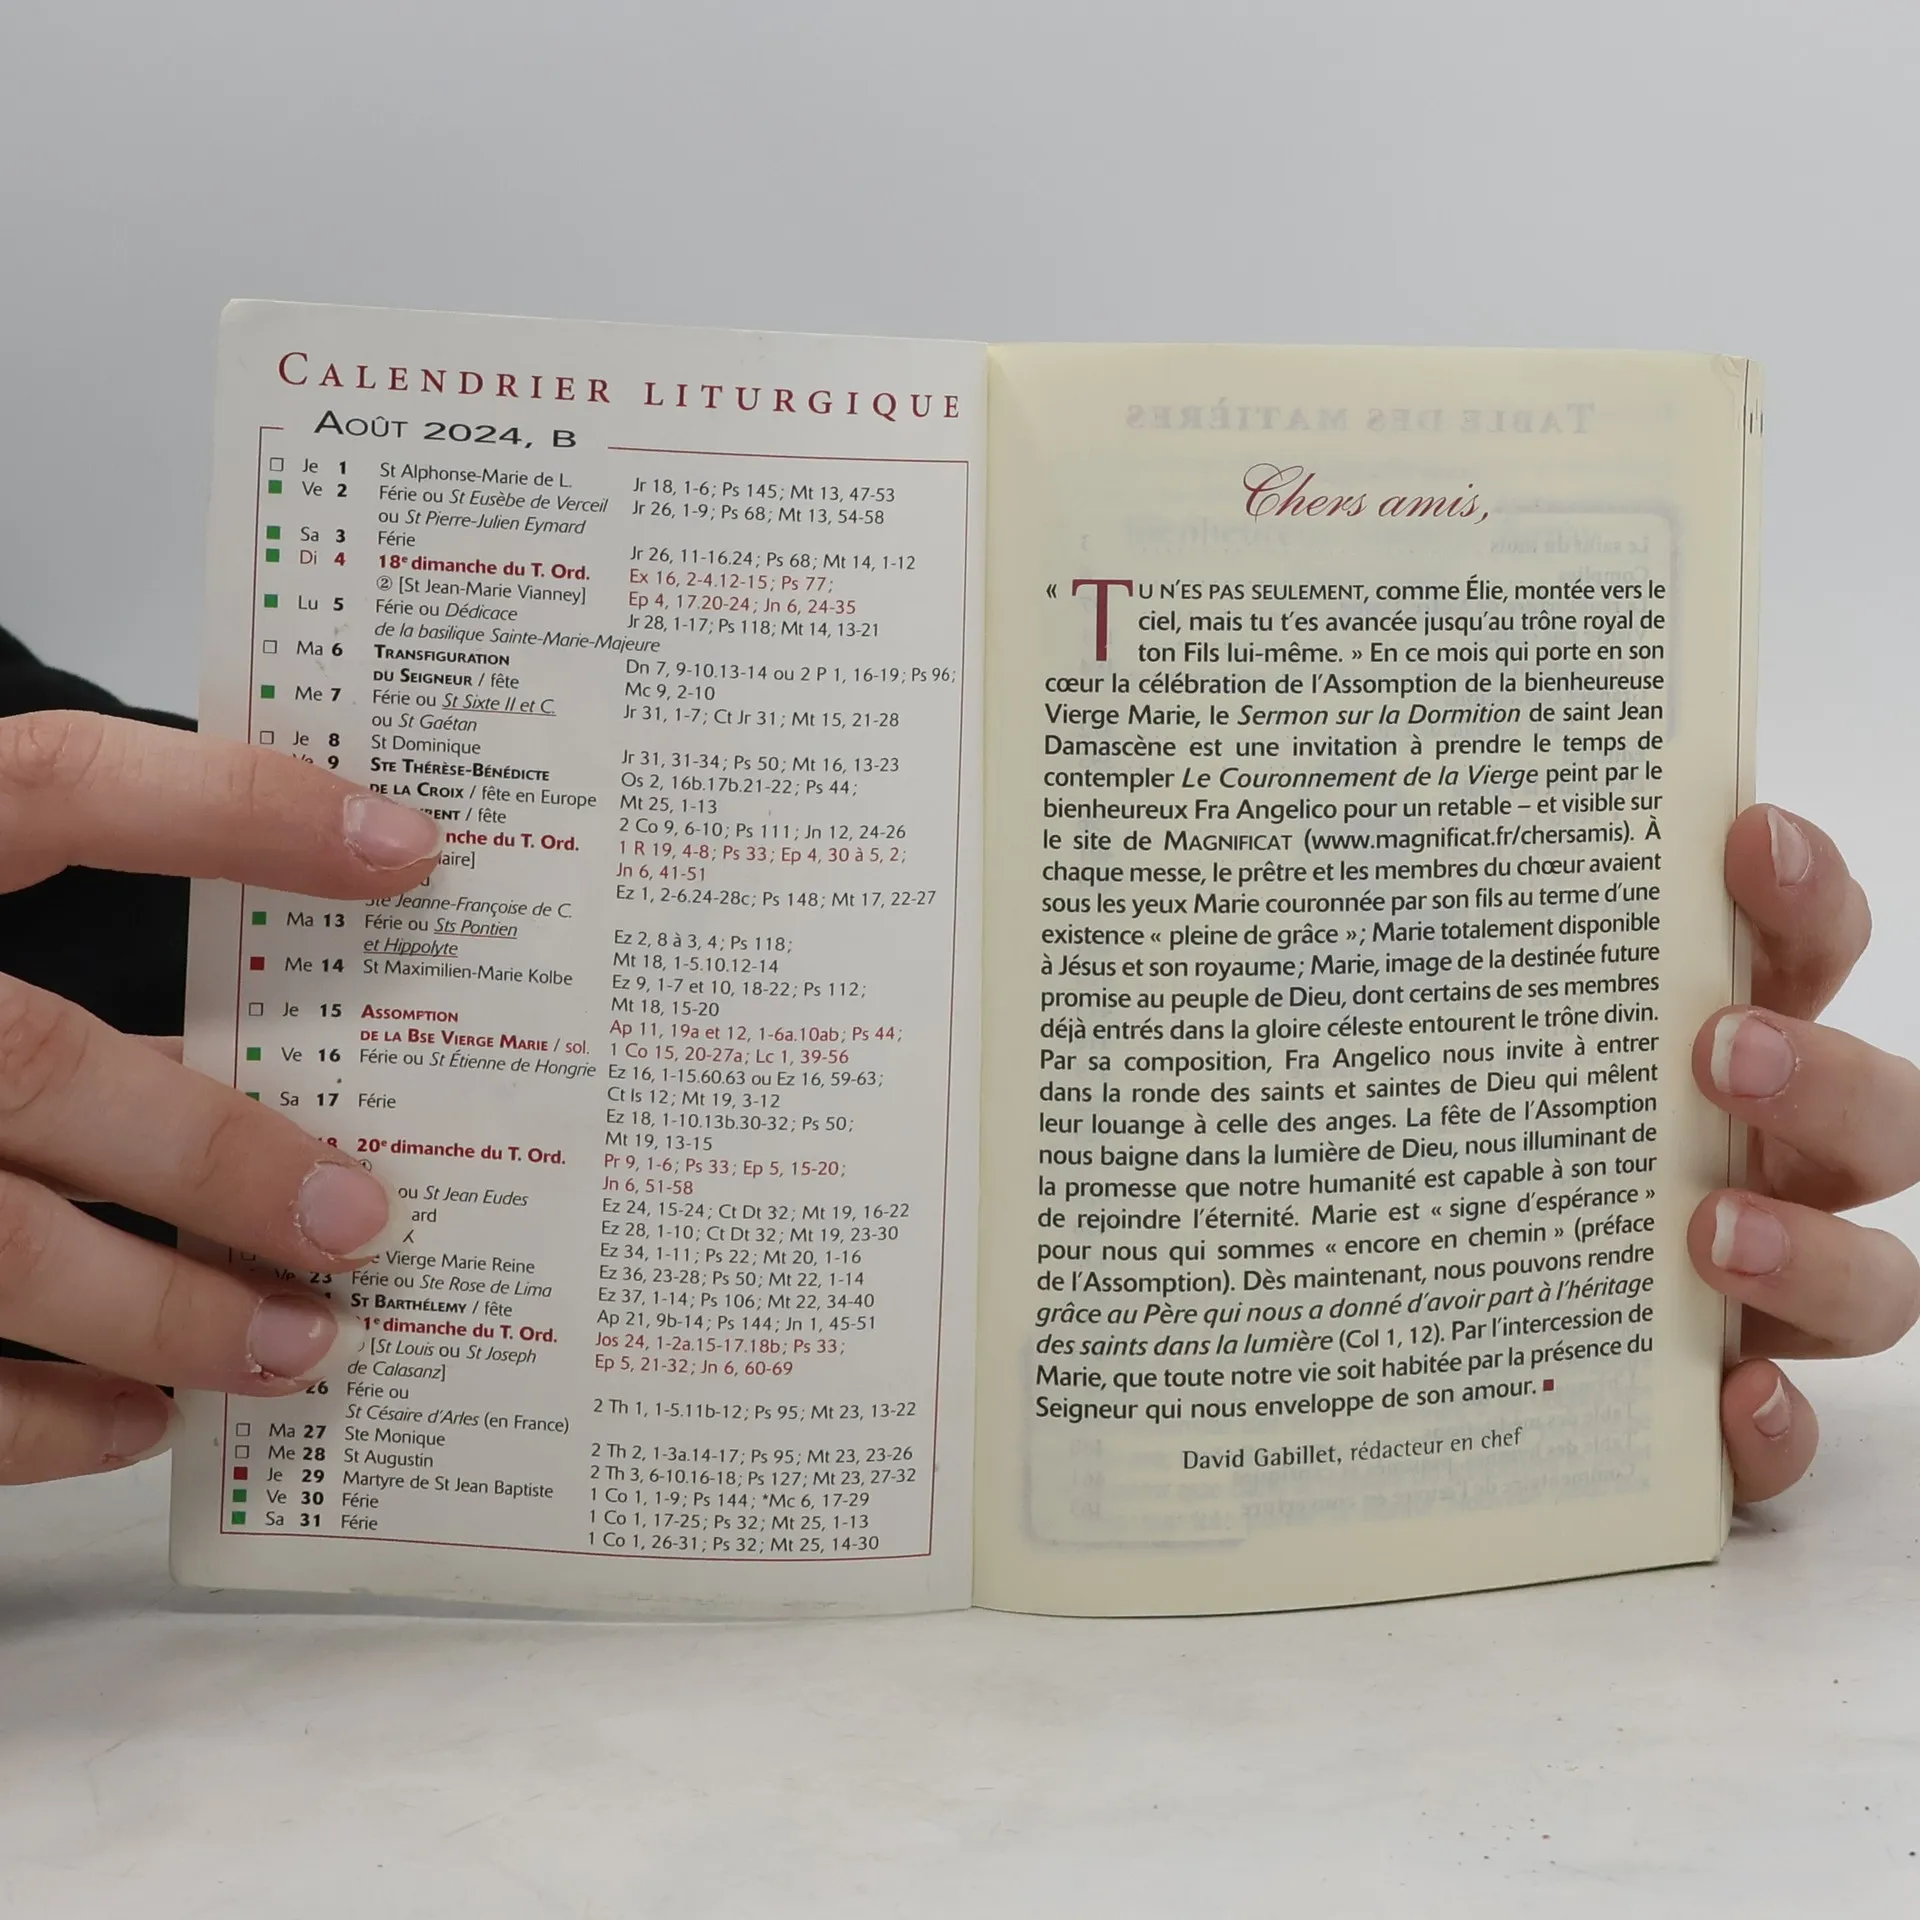 CALENDRIER LITURGIQUE
AOÛT 2024, B
Je 1 St Alphonse-Marie de L. Jr 18, 1-6; Ps 145; Mt 13, 47-53
Ve 2 Férie ou St Eusèbe de Verceil Jr 26, 1-9; Ps 68; Mt 13, 54-58
ou St Pierre-Julien Eymard
Sa 3 Férie Jr 26, 11-16.24; Ps 68; Mt 14, 1-12
Di 4 18e dimanche du T. Ord. Ex 16, 2-4.12-15; Ps 77;
② [St Jean-Marie Vianney] Ep 4, 17.20-24; Jn 6, 24-35
Lu 5 Férie ou Dédicace Jr 28, 1-17; Ps 118; Mt 14, 13-21
de la basilique Sainte-Marie-Majeure
Ma 6 TRANSFIGURATION Dn 7, 9-10.13-14 ou 2 P 1, 16-19; Ps 96;
DU SEIGNEUR / fête Mc 9, 2-10
Me 7 Férie ou St Sixte II et C. Jr 31, 1-7; Ct Jr 31; Mt 15, 21-28
ou St Gaétan
Je 8 St Dominique Jr 31, 31-34; Ps 50; Mt 16, 13-23
9 STE THÉRÈSE-BÉNÉDICTE Os 2, 16b.17b.21-22; Ps 44;
DE LA CROIX / fête en Europe Mt 25, 1-13
/ fête 2 Co 9, 6-10; Ps 111; Jn 12, 24-26
nche du T. Ord. 1 R 19, 4-8; Ps 33; Ep 4, 30 à 5, 2;
laire] Jn 6, 41-51
Ez 1, 2-6.24-28c; Ps 148; Mt 17, 22-27
Ste Jeanne-Françoise de C.
Ma 13 Férie ou Sts Pontien Ez 2, 8 à 3, 4; Ps 118;
et Hippolyte Mt 18, 1-5.10.12-14
Me 14 St Maximilien-Marie Kolbe Ez 9, 1-7 et 10, 18-22; Ps 112;
Mt 18, 15-20
Je 15 ASSOMPTION Ap 11, 19a et 12, 1-6a.10ab; Ps 44;
DE LA BSE VIERGE MARIE / sol. 1 Co 15, 20-27a; Lc 1, 39-56
Ve 16 Férie ou St Étienne de Hongrie Ez 16, 1-15.60.63 ou Ez 16, 59-63;
Ct Is 12; Mt 19, 3-12
Sa 17 Férie Ez 18, 1-10.13b.30-32; Ps 50;
Mt 19, 13-15
18 20e dimanche du T. Ord. Pr 9, 1-6; Ps 33; Ep 5, 15-20;
Jn 6, 51-58
ou St Jean Eudes Ez 24, 15-24; Ct Dt 32; Mt 19, 16-22
ard Ez 28, 1-10; Ct Dt 32; Mt 19, 23-30
Ez 34, 1-11; Ps 22; Mt 20, 1-16
Vierge Marie Reine Ez 36, 23-28; Ps 50; Mt 22, 1-14
Ve 23 Férie ou Ste Rose de Lima Ez 37, 1-14; Ps 106; Mt 22, 34-40
ST BARTHÉLEMY / fête Ap 21, 9b-14; Ps 144; Jn 1, 45-51
1e dimanche du T. Ord. Jos 24, 1-2a.15-17.18b; Ps 33;
[St Louis ou St Joseph Ep 5, 21-32; Jn 6, 60-69
de Calasanz]
26 Férie ou 2 Th 1, 1-5.11b-12; Ps 95; Mt 23, 13-22
St Césaire d'Arles (en France)
Ma 27 Ste Monique 2 Th 2, 1-3a.14-17; Ps 95; Mt 23, 23-26
Me 28 St Augustin 2 Th 3, 6-10.16-18; Ps 127; Mt 23, 27-32
Je 29 Martyre de St Jean Baptiste 1 Co 1, 1-9; Ps 144; *Mc 6, 17-29
Ve 30 Férie 1 Co 1, 17-25; Ps 32; Mt 25, 1-13
Sa 31 Férie 1 Co 1, 26-31; Ps 32; Mt 25, 14-30
Chers amis,
« TU N'ES PAS SEULEMENT, comme Élie, montée vers le
ciel, mais tu t'es avancée jusqu'au trône royal de
ton Fils lui-même. » En ce mois qui porte en son
cœur la célébration de l'Assomption de la bienheureuse
Vierge Marie, le Sermon sur la Dormition de saint Jean
Damascène est une invitation à prendre le temps de
contempler Le Couronnement de la Vierge peint par le
bienheureux Fra Angelico pour un retable – et visible sur
le site de MAGNIFICAT (www.magnificat.fr/chersamis). À
chaque messe, le prêtre et les membres du chœur avaient
sous les yeux Marie couronnée par son fils au terme d'une
existence « pleine de grâce »; Marie totalement disponible
à Jésus et son royaume; Marie, image de la destinée future
promise au peuple de Dieu, dont certains de ses membres
déjà entrés dans la gloire céleste entourent le trône divin.
Par sa composition, Fra Angelico nous invite à entrer
dans la ronde des saints et saintes de Dieu qui mêlent
leur louange à celle des anges. La fête de l'Assomption
nous baigne dans la lumière de Dieu, nous illuminant de
la promesse que notre humanité est capable à son tour
de rejoindre l'éternité. Marie est « signe d'espérance »
pour nous qui sommes « encore en chemin » (préface
de l'Assomption). Dès maintenant, nous pouvons rendre
grâce au Père qui nous a donné d'avoir part à l'héritage
des saints dans la lumière (Col 1, 12). Par l'intercession de
Marie, que toute notre vie soit habitée par la présence du
Seigneur qui nous enveloppe de son amour. ■
David Gabillet, rédacteur en chef